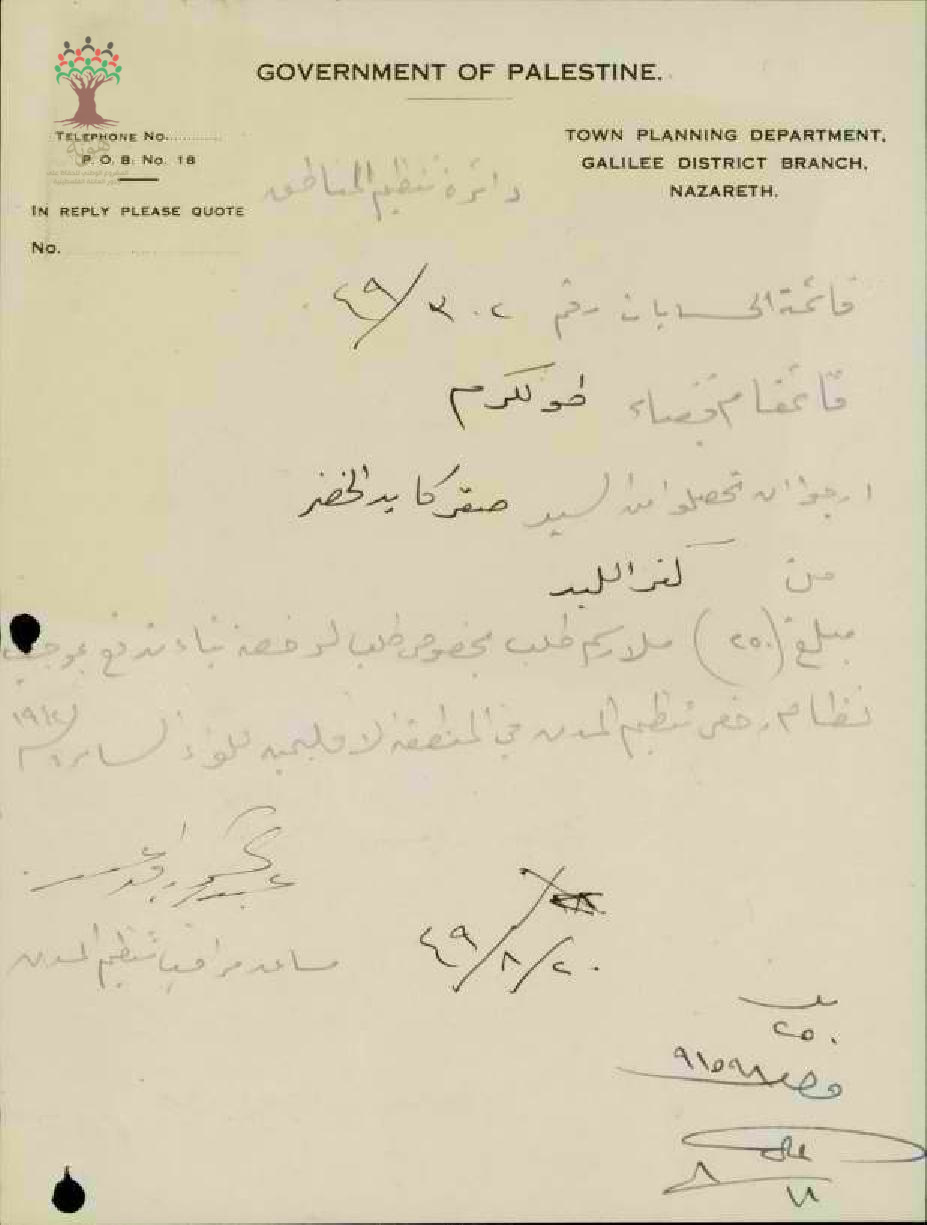 GOVERNMENT OF PALESTINE.
TELEPHONE No.
P. O. B. No. 18
IN REPLY PLEASE QUOTE
No.
TOWN PLANNING DEPARTMENT,
GALILEE DISTRICT BRANCH,
NAZARETH.
هوية
دائرة تنظيم المناطق
قائمة الحسابات رقم ٣٠٢/٤٩
قائمقام قضاء طولكرم
ارجو ان تحصلوا من السيد صقر كايد الخضر
من كفر اللبد
مبلغ (٢٥٠) ملا رسم طلب بخصوص طلب لرخصة بناء تدفع بموجب
نظام رخص تنظيم المدن في المنطقة الاقليمية للواء السامرة
مساعد مراقب تنظيم المدن
٢٠/٨/٤٩
٢٥٠